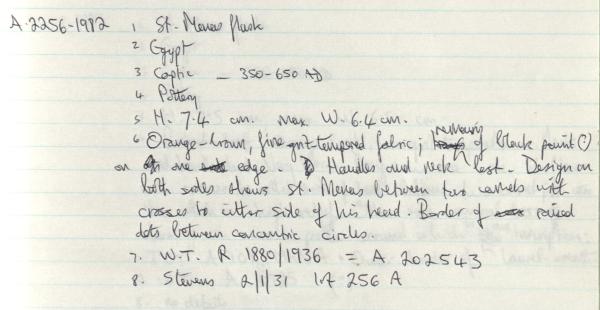 A.2256-1982 1 St. Menas flask
2 Egypt
3 Coptic – 350-650 AD
4 Pottery
5 H. 7.4 cm. max. W. 6.4 cm.
6 Orange-brown, fine grit-tempered fabric; remains of black paint (?)
on one edge. Handles and neck lost. Design on
both sides shows St. Menas between two camels with
crosses to either side of his head. Border of raised
dots between concentric circles.
7. W.T. R 1880/1936 = A 202543
8. Stevens 2/1/31 lot 256 A